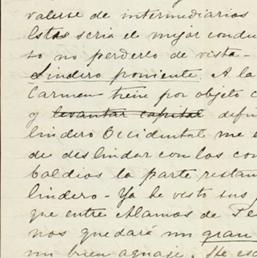 valerse de intermediarios
Estas seria el mejor condu
to no perderlo de vista-
Lindero poniente. A la
Carmen tiene por objeto
y levantar capital defin
lindero Occidental me
de deslindar con los con
baldios la parte restan
lindero - Ya he visto sus
que entre Alamos de
nos quedará un gran
un bien aguaje.